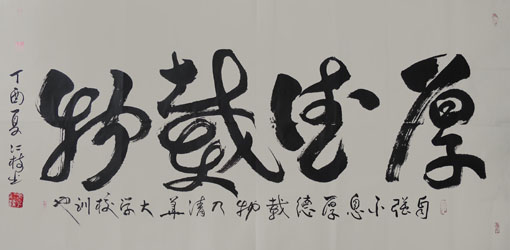 厚德载物
自强不息厚德载物乃清华大学校训也
丁酉夏仁